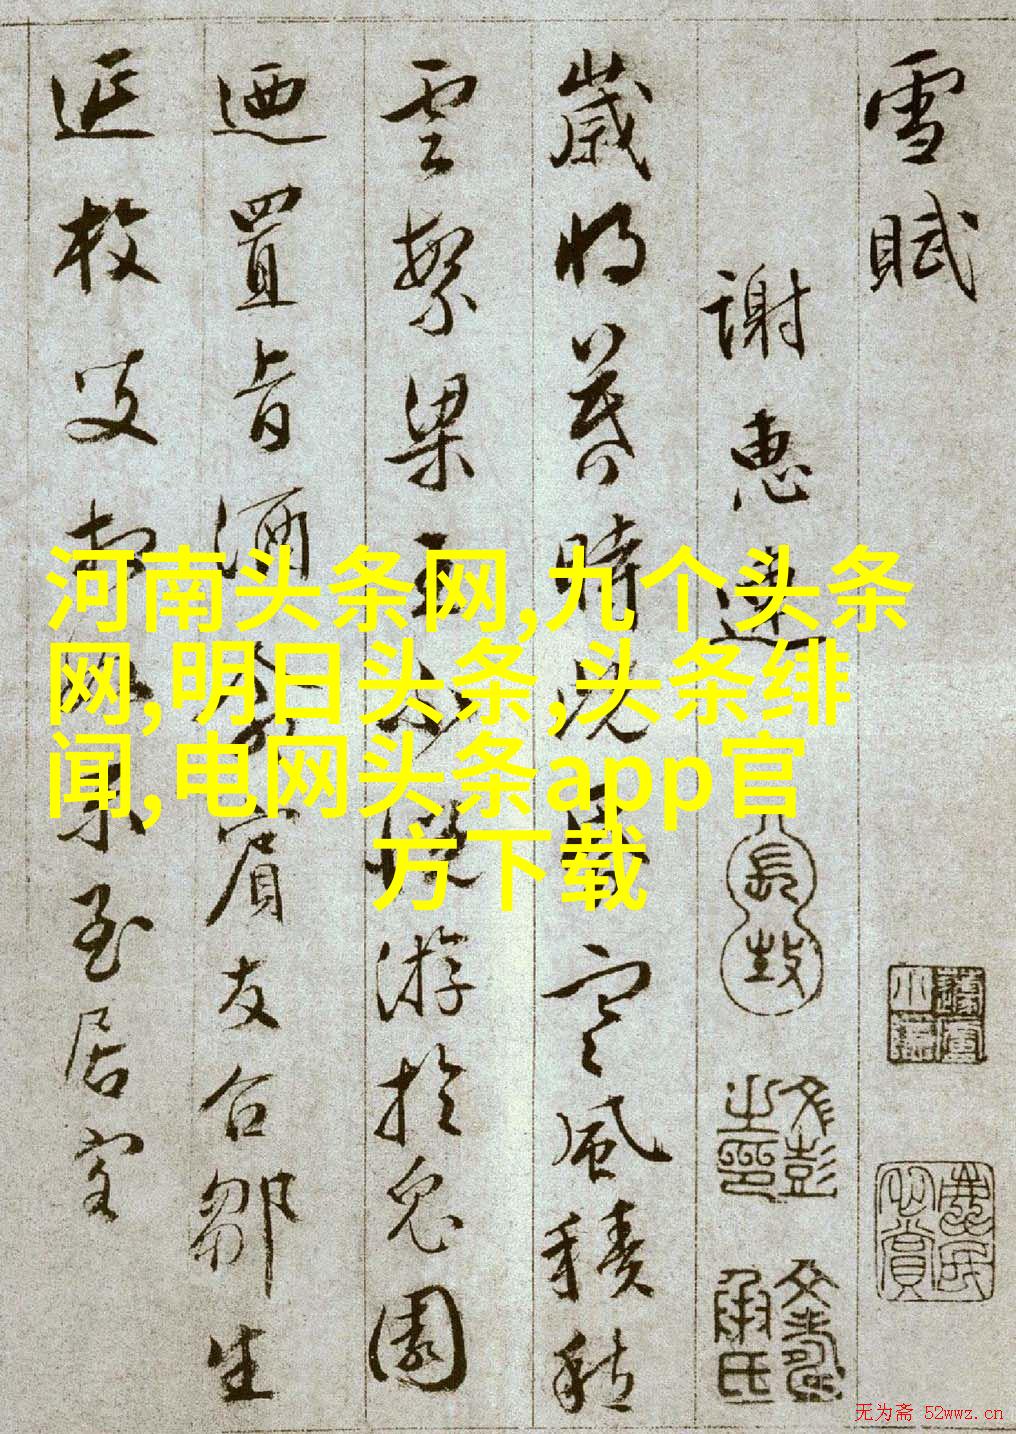 雪賦
謝惠連
歲将暮時既昏寒風積愁
雲繁梁王不悦游於兔園
迺置旨酒命賔友召鄒生
延枚叟相如末至居客
文彭之印
文壽承氏
河南头条网,九个头条
网,明日头条,头条绯
闻,电网头条app官
方下载
无为斋 52wwz.cn